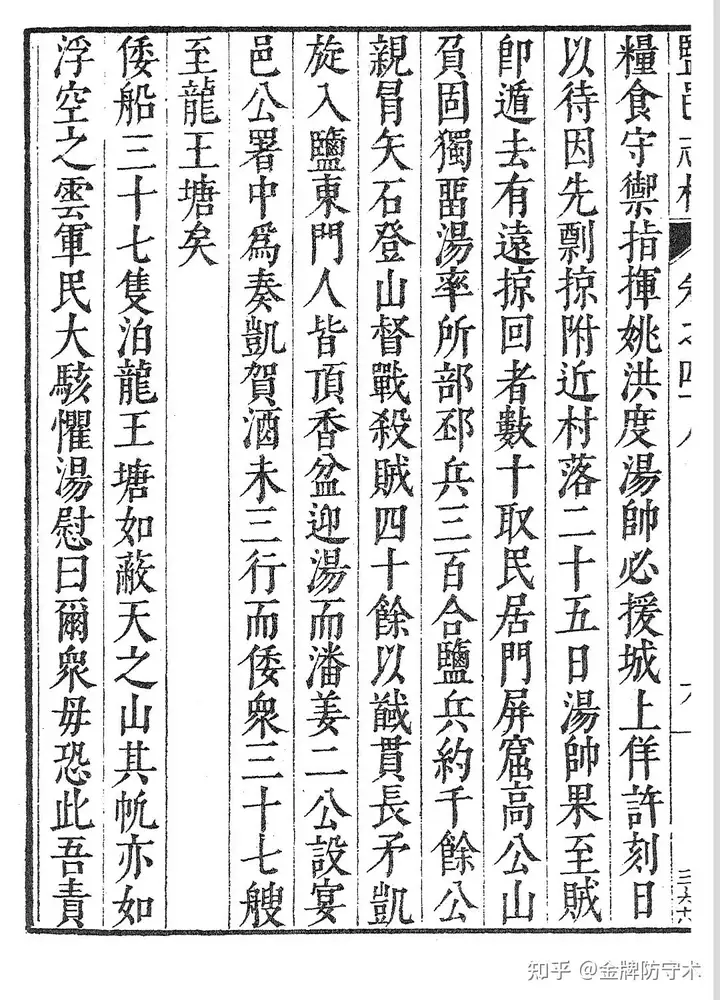 鹽邑志林 卷之四十八 十八 三六六
糧食守禦指揮姚洪度湯帥必援城上佯許刻日
以待因先剽掠附近村落二十五日湯帥果至賊
卽遁去有遠掠回者數十取民居門屏窟高公山
負固獨畱湯率所部邳兵三百合鹽兵約千餘公
親冒矢石登山督戰殺賊四十餘以馘貫長矛凱
旋入鹽東門人皆頂香盆迎湯而潘姜二公設宴
邑公署中爲奏凱賀酒未三行而倭衆三十七艘
至龍王塘矣
倭船三十七隻泊龍王塘如蔽天之山其帆亦如
浮空之雲軍民大駭懼湯慰曰爾衆毋恐此吾責
知乎 @金牌防守术